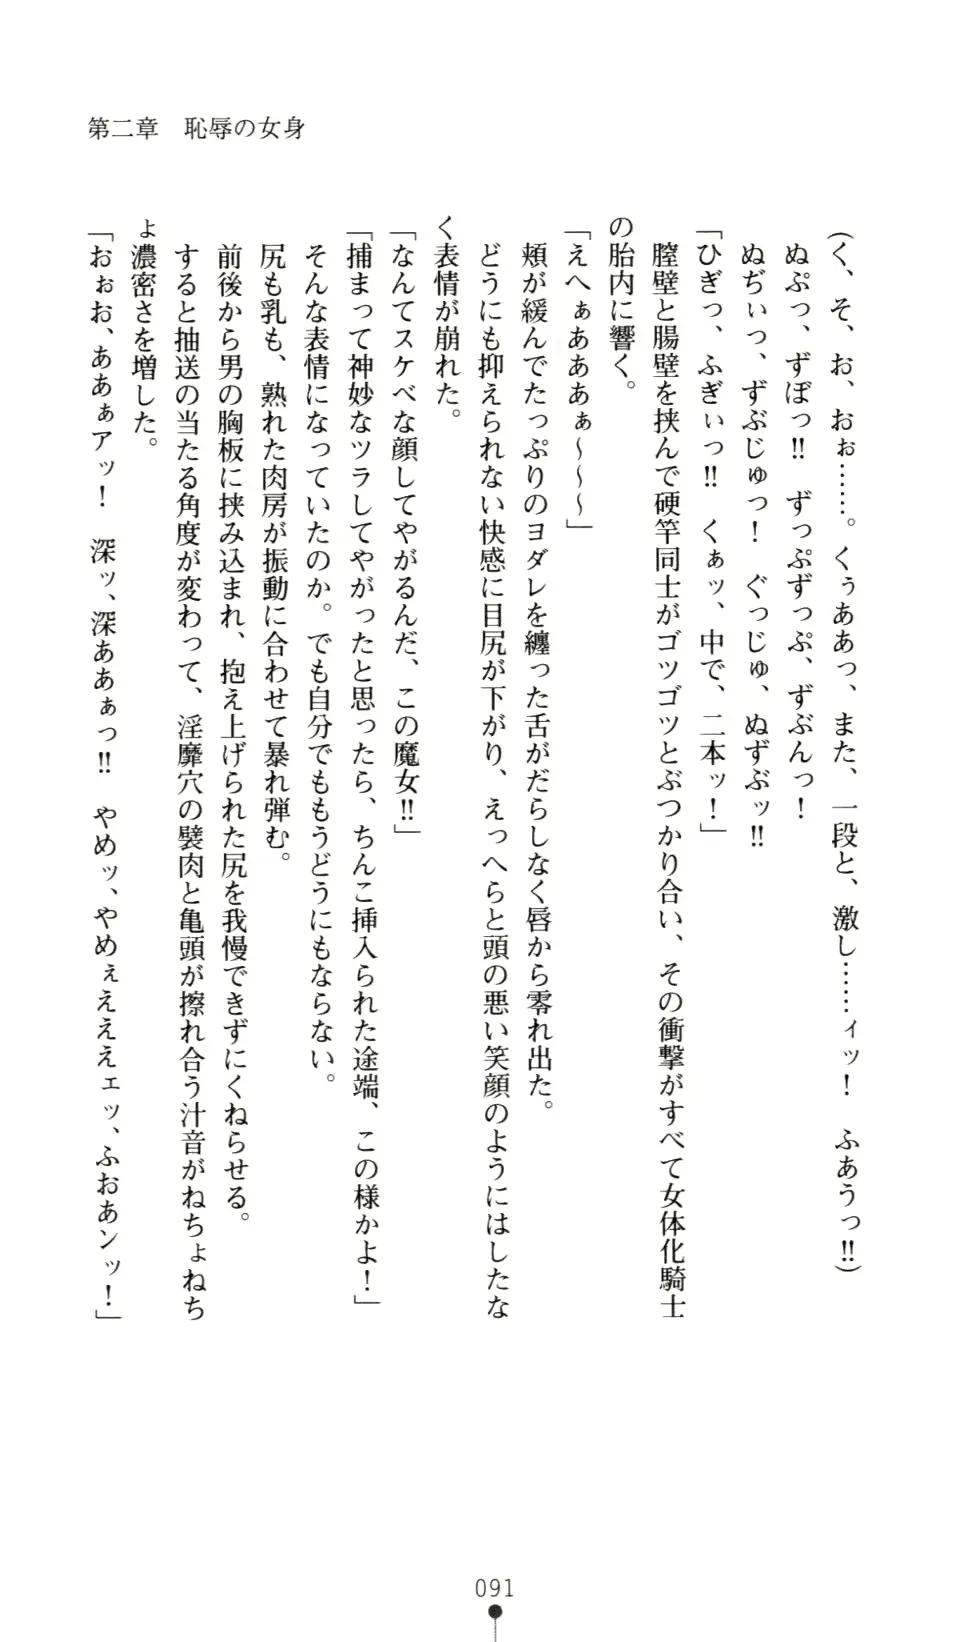 第二章　恥辱の女身
（く、そ、お、おぉ……。くぅああっ、また、一段と、激し……ィッ！　ふあうっ‼）
ぬぷっ、ずぼっ‼　ずっぷずっぷ、ずぶんっ！
ぬぢぃっ、ずぶじゅっ！　ぐっじゅ、ぬずぶッ‼
「ひぎっ、ふぎぃっ‼　くぁッ、中で、二本ッ！」
膣壁と腸壁を挟んで硬竿同士がゴツゴツとぶつかり合い、その衝撃がすべて女体化騎士
の胎内に響く。
「えへぁあああぁ～～～」
頬が緩んでたっぷりのヨダレを纏った舌がだらしなく唇から零れ出た。
どうにも抑えられない快感に目尻が下がり、えっへらと頭の悪い笑顔のようにはしたな
く表情が崩れた。
「なんてスケベな顔してやがるんだ、この魔女‼」
「捕まって神妙なツラしてやがったと思ったら、ちんこ挿入られた途端、この様かよ！」
そんな表情になっていたのか。でも自分でももうどうにもならない。
尻も乳も、熟れた肉房が振動に合わせて暴れ弾む。
前後から男の胸板に挟み込まれ、抱え上げられた尻を我慢できずにくねらせる。
すると抽送の当たる角度が変わって、淫靡穴の襞肉と亀頭が擦れ合う汁音がねちょねち
ょ濃密さを増した。
「おぉお、ああぁアッ！　深ッ、深ああぁっ‼　やめッ、やめぇえええェッ、ふおあンッ！」
091